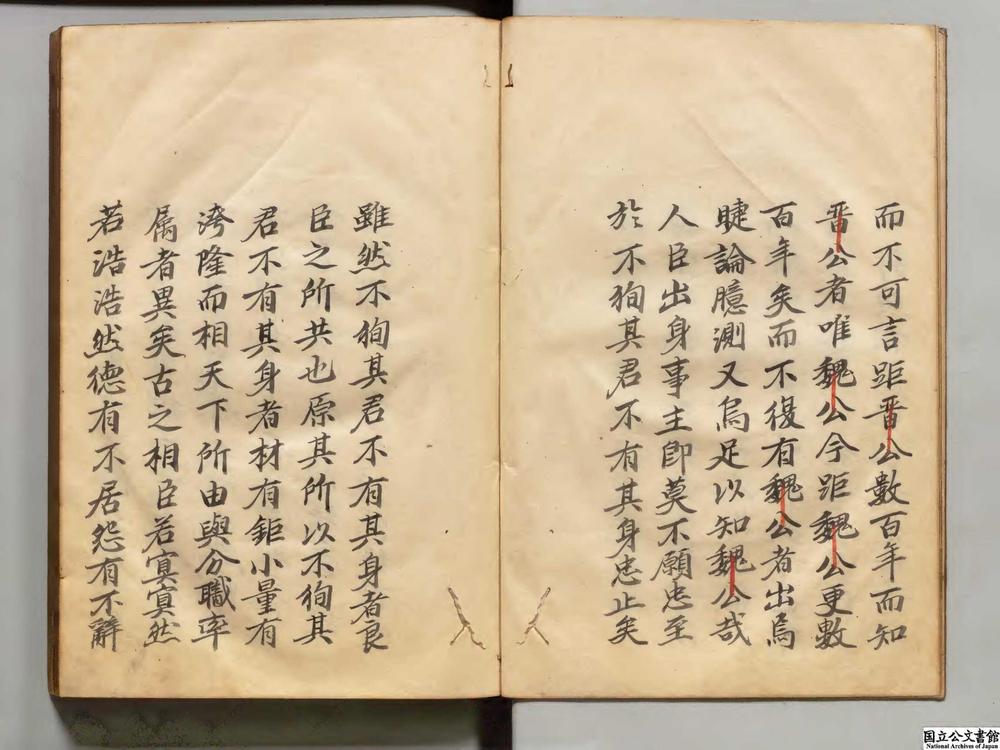 而不可言距晋公數百年而知
晋公者唯魏公今距魏公更數
百年矣而不復有魏公者出烏
睫論臆測又烏足以知魏公哉
人臣出身事主卽莫不願忠至
於不狥其君不有其身忠止矣
雖然不狥其君不有其身者良
臣之所共也原其所以不狥其
君不有其身者材有鉅小量有
洿隆而相天下所由與分職率
屬者異矣古之相臣若寘寘然
若浩浩然德有不居怨有不辭
国立公文書館
National Archives of Japan